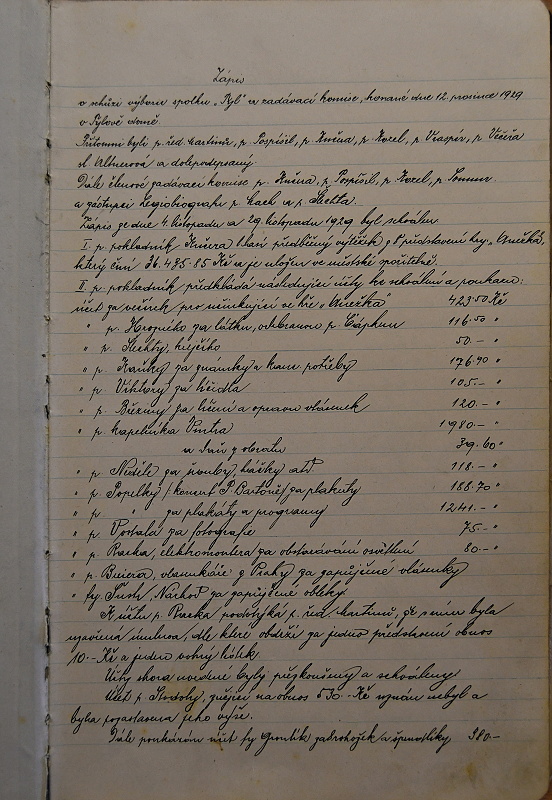 Zápis
o schůzi výboru spolku „Tyl“ a zadávací komise, konané dne 12. prosince 1929
v Tylově domě.
Přítomni byli p. řed. Martinů, p. Pospíšil, p. Kučera, p. Korel, p. Vraspír, p. Večeřa
sl. Altnerová a dolepodepsaný.
Dále členové zadávací komise p. Kučera, p. Pospíšil, p. Korel, p.
a zástupci Legiobiografu p. Kach a p. Šlechta.
Zápis ze dne 4. listopadu a 29. listopadu 1929 byl schválen
I. p. pokladník Kučera hlásí předběžný výtěžek z 8 představení
který činí 36.475.85 Kč a je uložen ve městské spořitelně.
II. p. pokladník předkládá následující účty ke schválení a poukazu:
účet za věneček pro účinkující ve hře „Anežka“ 423.50 Kč
" p. Hropného za látku, odebranou p. Čápkem 116.50 "
" p. Šlechty, holičího 50.- "
" p. Kaňky za známky a kanc. potřeby 176.90 "
" p. Viktory za křídla 105.- "
" p. Březiny za líčení a opravu vlásenek 120.- "
" p. kapelníka Vintra 1980.- "
a daň z obratu 39.60 "
" p. Neděle za šrouby, háčky atd 118.- "
" p. Popelky /komut. P. Bartoně/ za plakáty 188.70 "
" p. " za plakáty a programy 1241.- "
" p. Postala za fotografie 75.- "
" p. Racka, elektromontera za obstarávání osvětlení 80.- "
" p. Buiera, vlasenkáře z Prahy za zapůjčené vlásenky
" fy. Náchod za zapůjčené obleky.
K účtu p. Racka podotýká p. řed. Martinů, že s ním byla
uzavřena úmluva, dle které obdrží za jedno představení obnos
10.- Kč a jeden volný lístek
Účty shora uvedené byly přezkoušeny a schváleny
Účet p. Svobody, znějící na obnos 530.- Kč uznán nebyl a
byla pozastavena jeho výše.
Dále poukázán účet fy Grontík za drohožek a špendlíky 380-